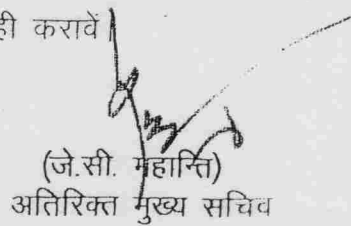 ही करावें।
(जे.सी. महान्ति)
अतिरिक्त मुख्य सचिव